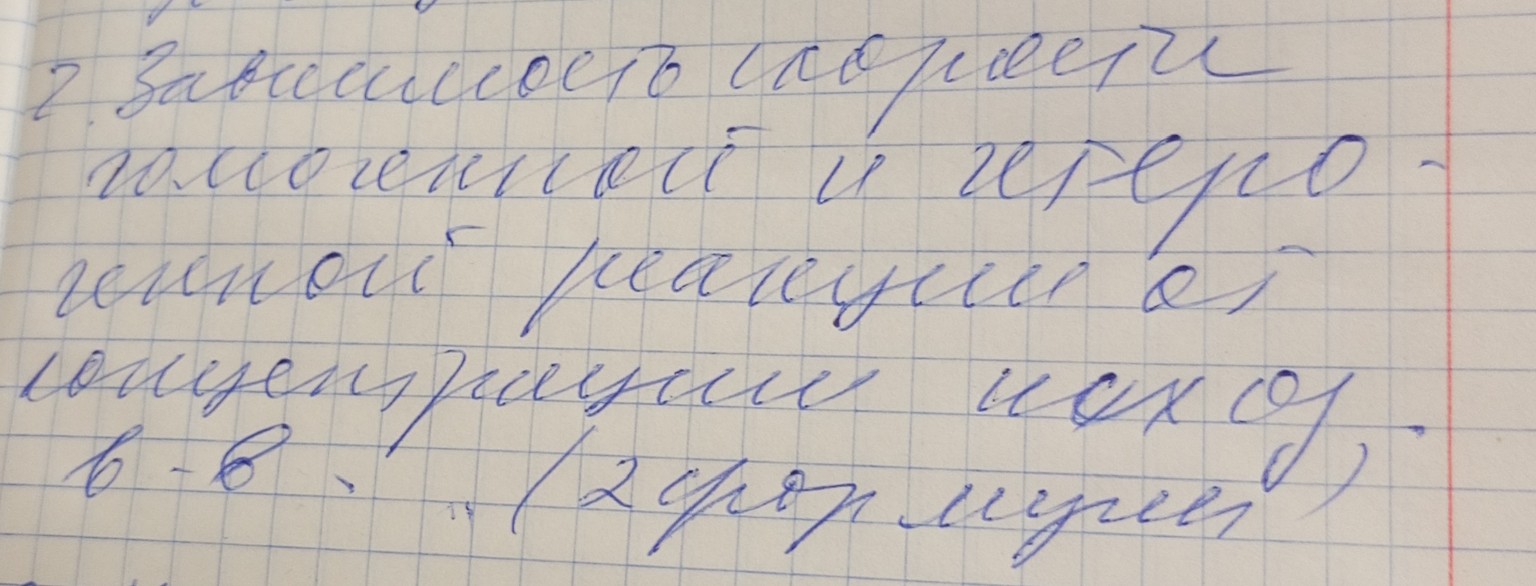 2. Зависимость скорости
гомогенной и гетеро-
генной реакции от
концентрации исход.
в-в. (2 формулы)